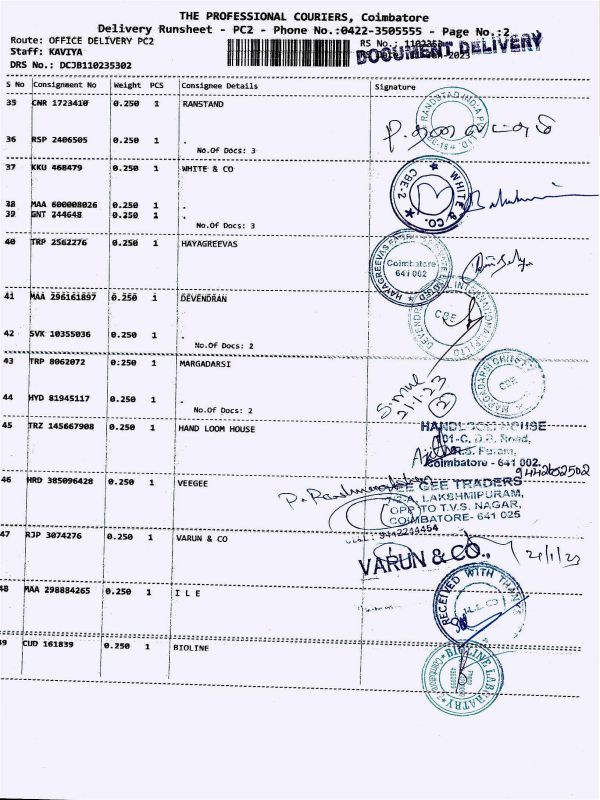 THE PROFESSIONAL COURIERS, Coimbatore
Delivery Runsheet - PC2 - Phone No.:0422-3505555 - Page No.:2
Route: OFFICE DELIVERY PC2
Staff: KAVIYA
RS No.:
DOCUMENT DELIVERY
2023
DRS No.: DCJB110235302
S No Consignment No Weight PCS Consignee Details Signature
35 CNR 1723410 0.250 1 RANSTAND
36 RSP 2406505 0.250 1 .
No.Of Docs: 3
37 KKU 468479 0.250 1 WHITE & CO
WHITE & CO. CBE-2
38 MAA 600008026 0.250 1 .
39 GNT 244648 0.250 1 .
No.Of Docs: 3
40 TRP 2562276 0.250 1 HAYAGREEVAS
Coimbatore
641 002
41 MAA 296161897 0.250 1 DEVENDRAN
CBE
42 SVK 10355036 0.250 1 .
No.Of Docs: 2
43 TRP 8062072 0.250 1 MARGADARSI
CBE
21/1/23
2
44 HYD 81945117 0.250 1 .
No.Of Docs: 2
45 TRZ 145667908 0.250 1 HAND LOOM HOUSE
HANDLOOM HOUSE
Road,
R.S. Puram,
Coimbatore - 641 002.
9442602502
46 HRD 385096428 0.250 1 VEEGEE
GEE TRADERS
LAKSHMIPURAM,
OPP TO T.V.S. NAGAR,
COIMBATORE- 641 025
47 RJP 3074276 0.250 1 VARUN & CO
VARUN & CO.,
21/1/23
48 MAA 298884265 0.250 1 I L E
RECEIVED WITH THANKS
49 CUD 161839 0.250 1 BIOLINE
BIOLINE LABORATRY